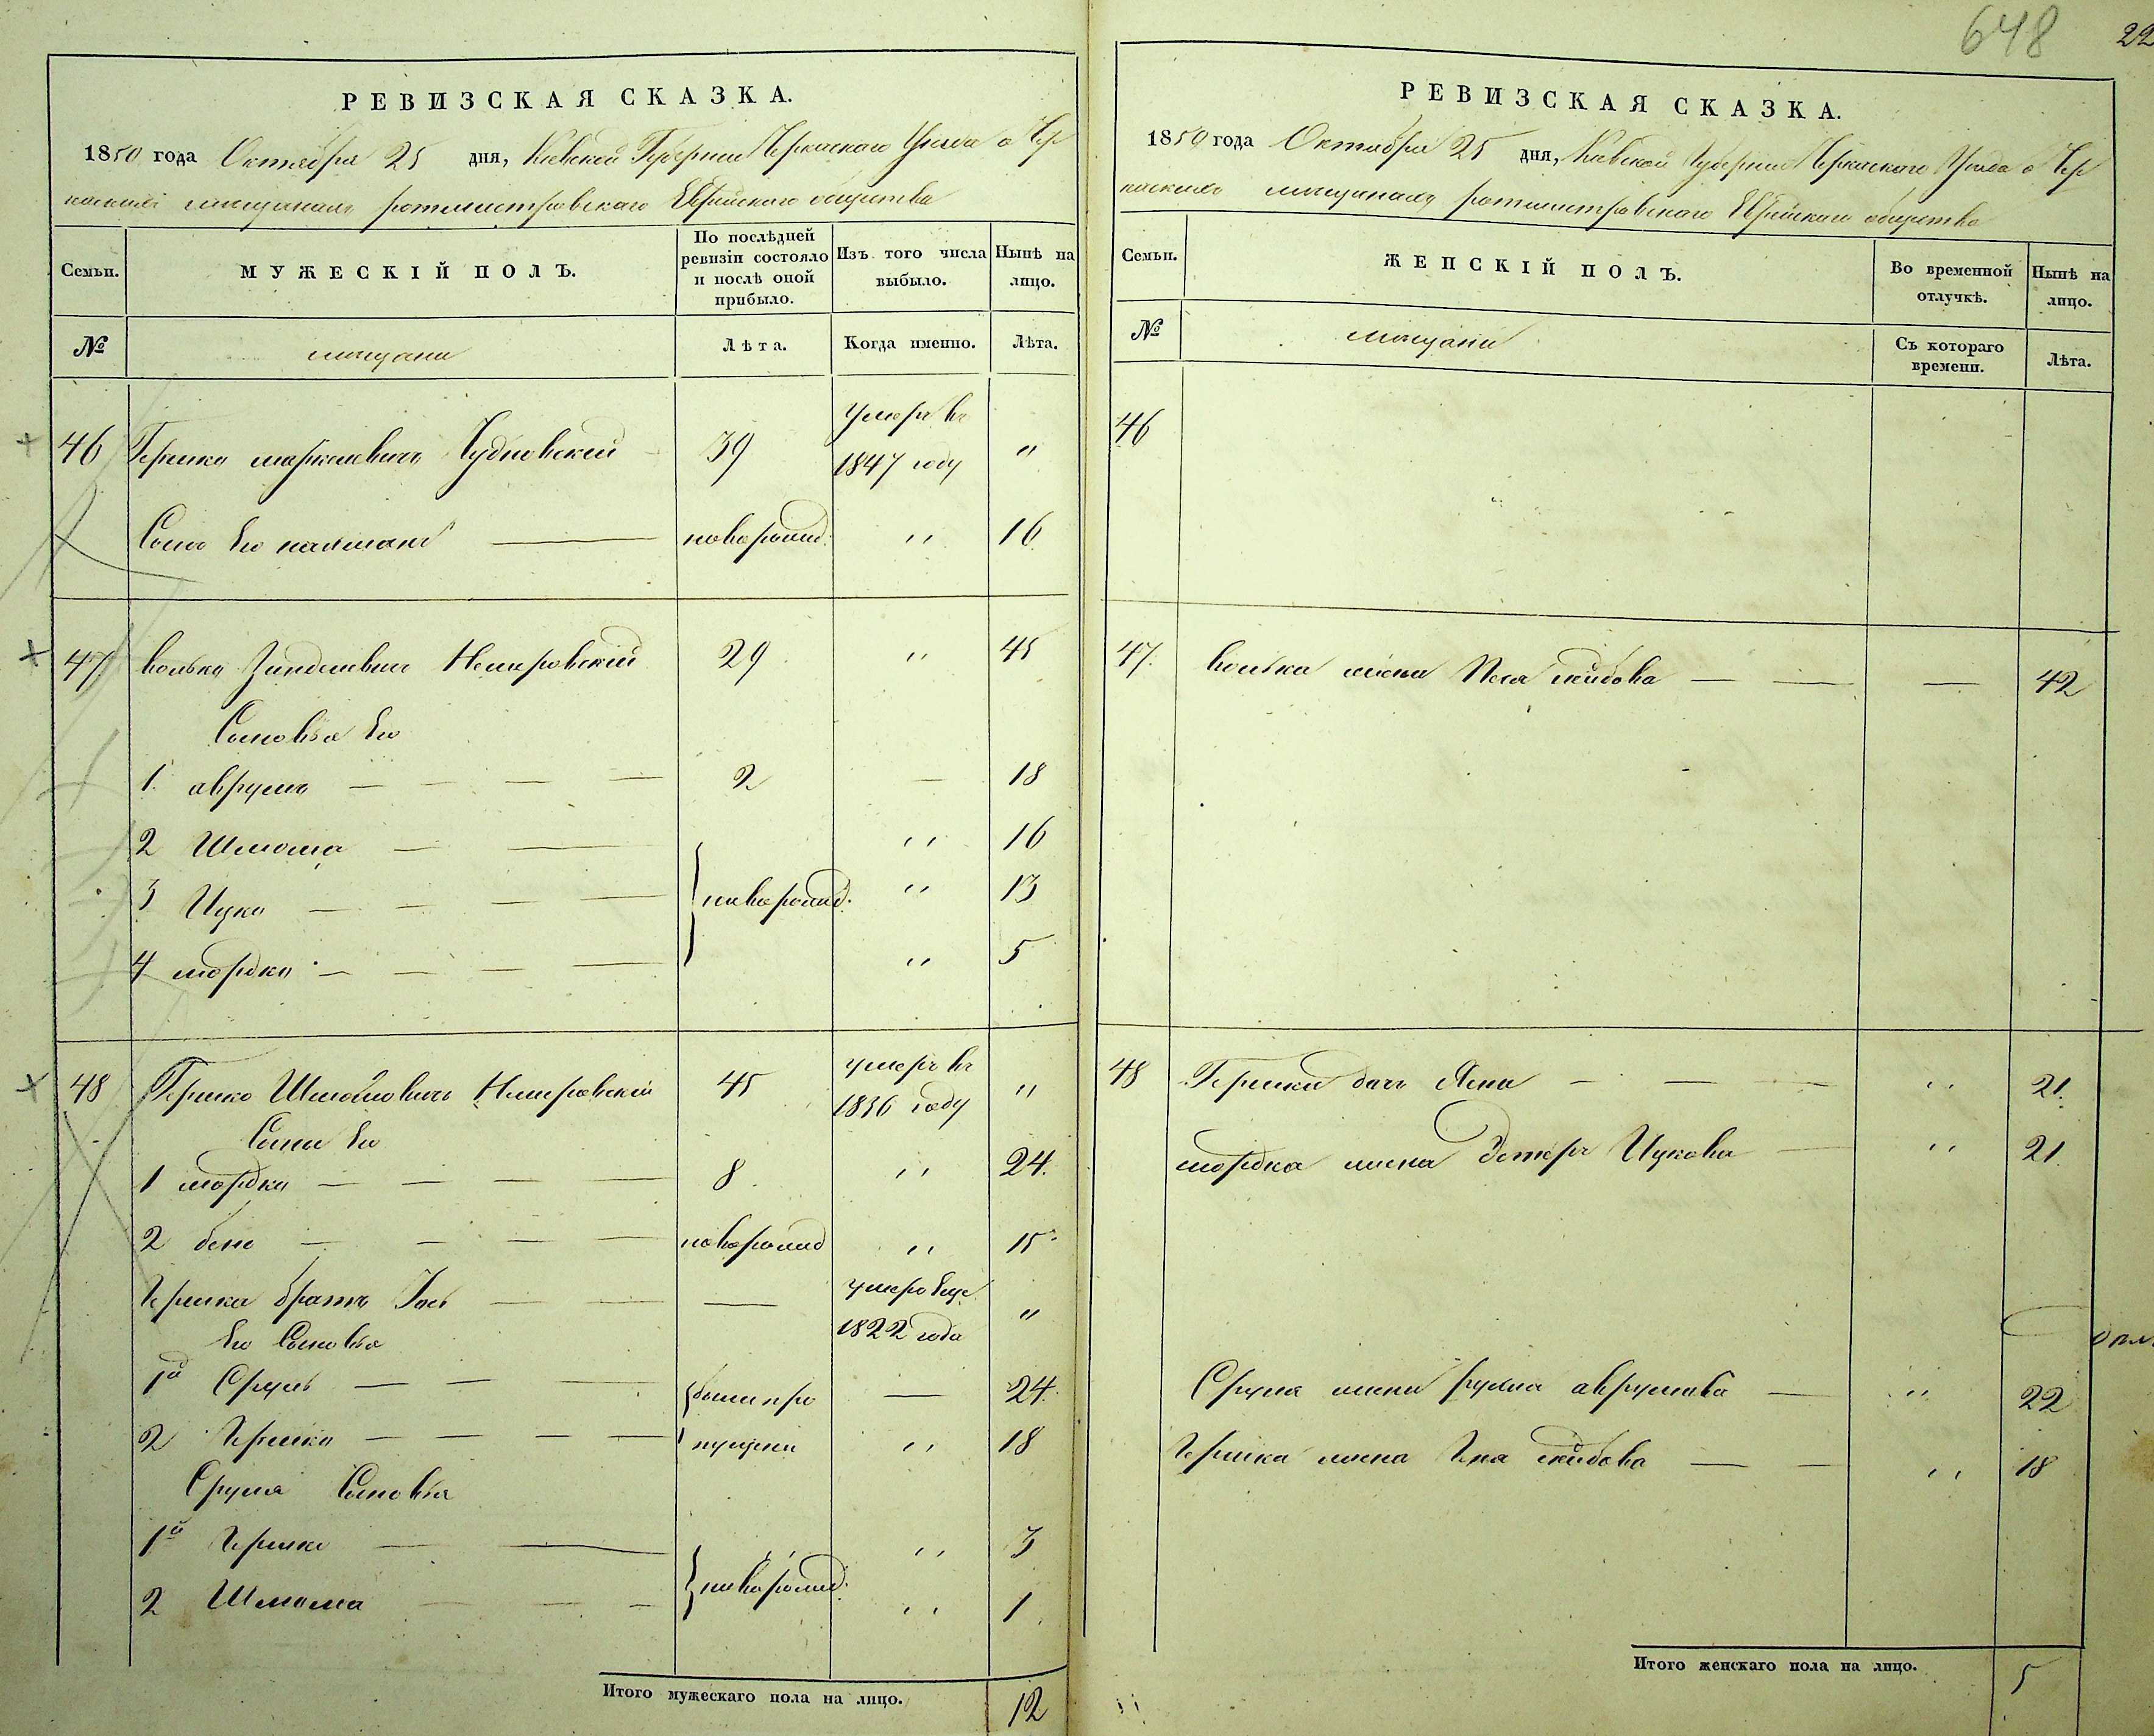 648
22
РЕВИЗСКАЯ СКАЗКА.
1850 года Октября 25 дня, Киевской Губернии Черкаского Уезда о Чер
каскихъ мещанахъ ротмистровского Еврейского общества
Семьи.
МУЖЕСКІЙ ПОЛЪ.
По послѣдней ревизіи состояло и послѣ оной прибыло.
Изъ того числа выбыло.
Нынѣ на лицо.
№
мещани
Лѣта.
Когда именно.
Лѣта.
46 Гершко Чудновский 39 умеръ въ 1847 году "
Сынъ Его новорожд: " 16
47 волько Немеровский 29 " 45
Сыновья Его
1. аврумъ — — — — 2 — 18
2 Шлиома — — " 16
3 Ицко — — — — новорожд: " 13
4 мордко — — — — " 5
48 Гершко Шлиомовичъ Немеровский 45 умеръ въ 1836 году "
Сыни Его
1 мордко — — — — 8 " 24.
2 бено — — — — новорожд " 15
Гершка братъ Iось — — — умеръ Еще 1822 года "
Его Сыновья
1й Сруль — — — были про — 24.
2 Гершко — — — — пущени " 18
Сруля Сыновья
1й Гершко — — " " 3
2 Шлиома — — — новорожд: " 1
Итого мужескаго пола на лицо. 12
РЕВИЗСКАЯ СКАЗКА.
1850 года Октября 25 дня, Киевской Губернии Черкаского Уезда о Чер
каскихъ мещанахъ ротмистровского Еврейского общества
Семьи.
ЖЕНСКІЙ ПОЛЪ.
Во временной отлучкѣ.
Нынѣ на лицо.
№
мещани
Съ котораго времени.
Лѣта.
46
47. волька жена Песя лейбова — — — 42
48 Гершки дочь — — — " 21.
мордка жена Эстеръ Ицкова — " 21.
Сруля жена рухля аврумова — " 22
Гершка жена лейбова — — " 18
Итого женскаго пола на лицо. 5